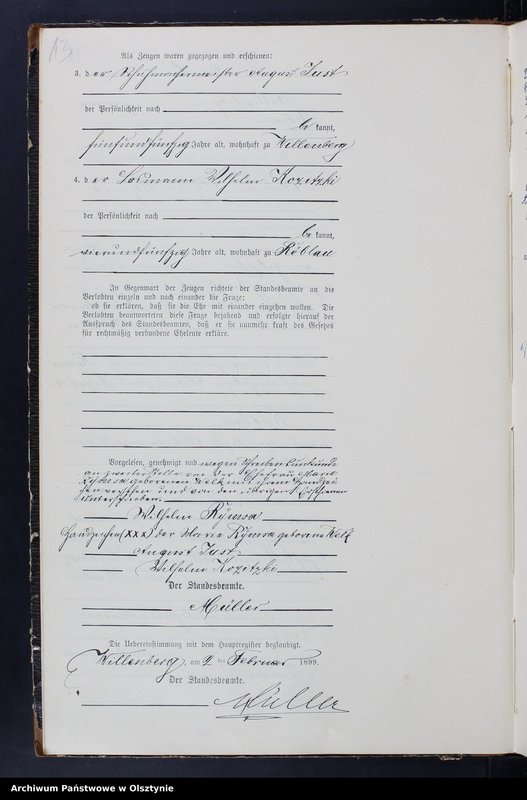 13.
Als Zeugen waren zugezogen und erschienen:
3. der Schuhmachermeister August Just
der Persönlichkeit nach
be kannt,
fünfundfünfzig Jahre alt, wohnhaft zu Willenberg
4. der Losmann Wilhelm Kozitzki
der Persönlichkeit nach
be kannt,
vierundfünfzig Jahre alt, wohnhaft zu Röblau
In Gegenwart der Zeugen richtete der Standesbeamte an die
Verlobten einzeln und nach einander die Frage:
ob sie erklären, daß sie die Ehe mit einander eingehen wollen. Die
Verlobten beantworteten diese Frage bejahend und erfolgte hierauf der
Ausspruch des Standesbeamten, daß er sie nunmehr kraft des Gesetzes
für rechtmäßig verbundene Eheleute erkläre.
Vorgelesen, genehmigt und wegen Schreibensunkunde
an zweiter Stelle von der Ehefrau Marie
Rÿmsa geborenen Kelb mit ihrem Handzei
chen versehen und von den übrigen Erschienenen
unterschrieben.
Wilhelm Rÿmsa
Handzeichen (XXX) der Marie Rÿmsa geborene Kelb
August Just
Wilhelm Kozitzki
Der Standesbeamte.
Müller
Die Uebereinstimmung mit dem Hauptregister beglaubigt.
Willenberg, am 2 ten Februar 1899.
Der Standesbeamte.
Müller
Archiwum Państwowe w Olsztynie